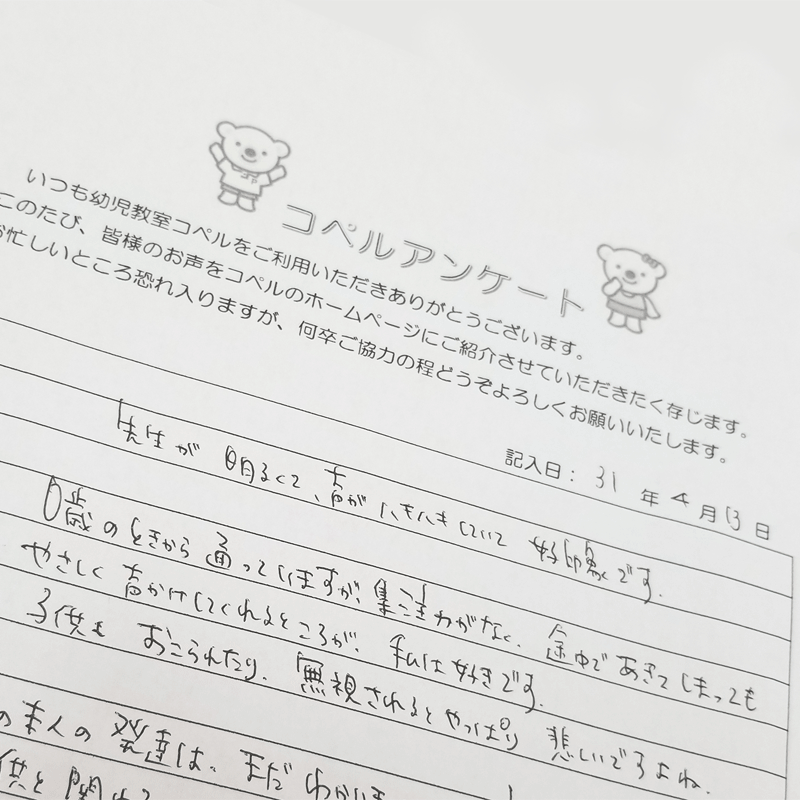 コペルアンケート
いつも幼児教室コペルをご利用いただきありがとうございます。
このたび、皆様のお声をコペルのホームページにご紹介させていただきたく存じます。
お忙しいところ恐れ入りますが、何卒ご協力の程どうぞよろしくお願いいたします。
記入日： 31 年 4 月 13 日
先生が 明るくて、声が ハキハキしていて 好印象です。
0歳のときから 通っていますが、集注力がなく、途中で あきてしまっても
やさしく 声かけしてくれるところが、私は好きです。
子供も おこられたり、無視されるとやっぱり 悲しいですよね。
の本人の 発達は、まだ わかりま
供と 関わ